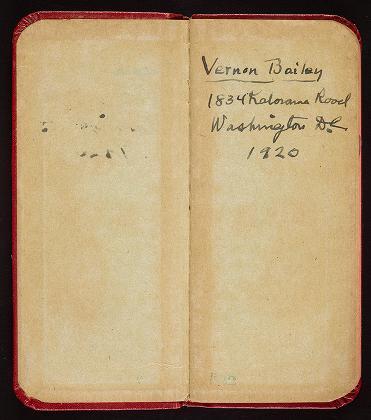 Vernon Bailey
1834 Kalorama Road
Washington DC
1920